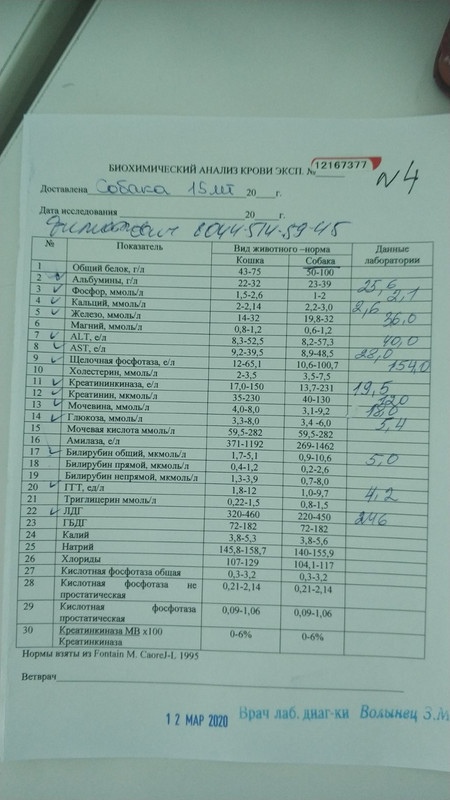 12167377
БИОХИМИЧЕСКИЙ АНАЛИЗ КРОВИ ЭКСП. №
N4
Доставлена Собака 15 лет 20 г.
Дата исследования 20 г.
8044-514-59-45
№ Показатель Вид животного –норма Данные лаборатории
Кошка Собака
1 Общий белок, г/л 43-75 50-100
2 Альбумины, г/л 22-32 23-39 25,6
3 Фосфор, ммоль/л 1,5-2,6 1-2 2,1
4 Кальций, ммоль/л 2-2,14 2,2-3,0 2,6
5 Железо, ммоль/л 14-32 19,8-32 36,0
6 Магний, ммоль/л 0,8-1,2 0,6-1,2
7 ALT, е/л 8,3-52,5 8,2-57,3 40,0
8 AST, е/л 9,2-39,5 8,9-48,5 28,0
9 Щелочная фосфотаза, е/л 12-65,1 10,6-100,7 154,0
10 Холестерин, ммоль/л 2-3,5 3,5-7,5
11 Креатининкиназа, е/л 17,0-150 13,7-231 19,5
12 Креатинин, мкмоль/л 35-230 40-130 120
13 Мочевина, ммоль/л 4,0-8,0 3,1-9,2 18,0
14 Глюкоза, ммоль/л 3,3-8,0 3,4 -6,0 5,4
15 Мочевая кислота ммоль/л 59,5-282 59,5-282
16 Амилаза, е/л 371-1192 269-1462
17 Билирубин общий, мкмоль/л 1,7-5,1 0,9-10,6 5,0
18 Билирубин прямой, мкмоль/л 0,4-1,2 0,2-2,6
19 Билирубин непрямой, мкмоль/л 1,3-3,9 0,7-8,0
20 ГГТ, ед/л 1,8-12 1,0-9,7 4,2
21 Триглицерин ммоль/л 0,22-1,5 0,8-1,5
22 ЛДГ 320-460 220-450 246
23 ГБДГ 72-182 72-182
24 Калий 3,8-5,3 3,8-5,6
25 Натрий 145,8-158,7 140-155,9
26 Хлориды 107-129 104,1-117
27 Кислотная фосфотаза общая 0,3-3,2 0,3-3,2
28 Кислотная фосфотаза не простатическая 0,21-2,14 0,21-2,14
29 Кислотная фосфотаза простатическая 0,09-1,06 0,09-1,06
30 Креатинкиназа МВ х100 Креатинкиназа 0-6% 0-6%
Нормы взяты из Fontain M. CaoreJ-L 1995
Ветврач
12 МАР 2020 Врач лаб. диаг-ки Волынец З.М